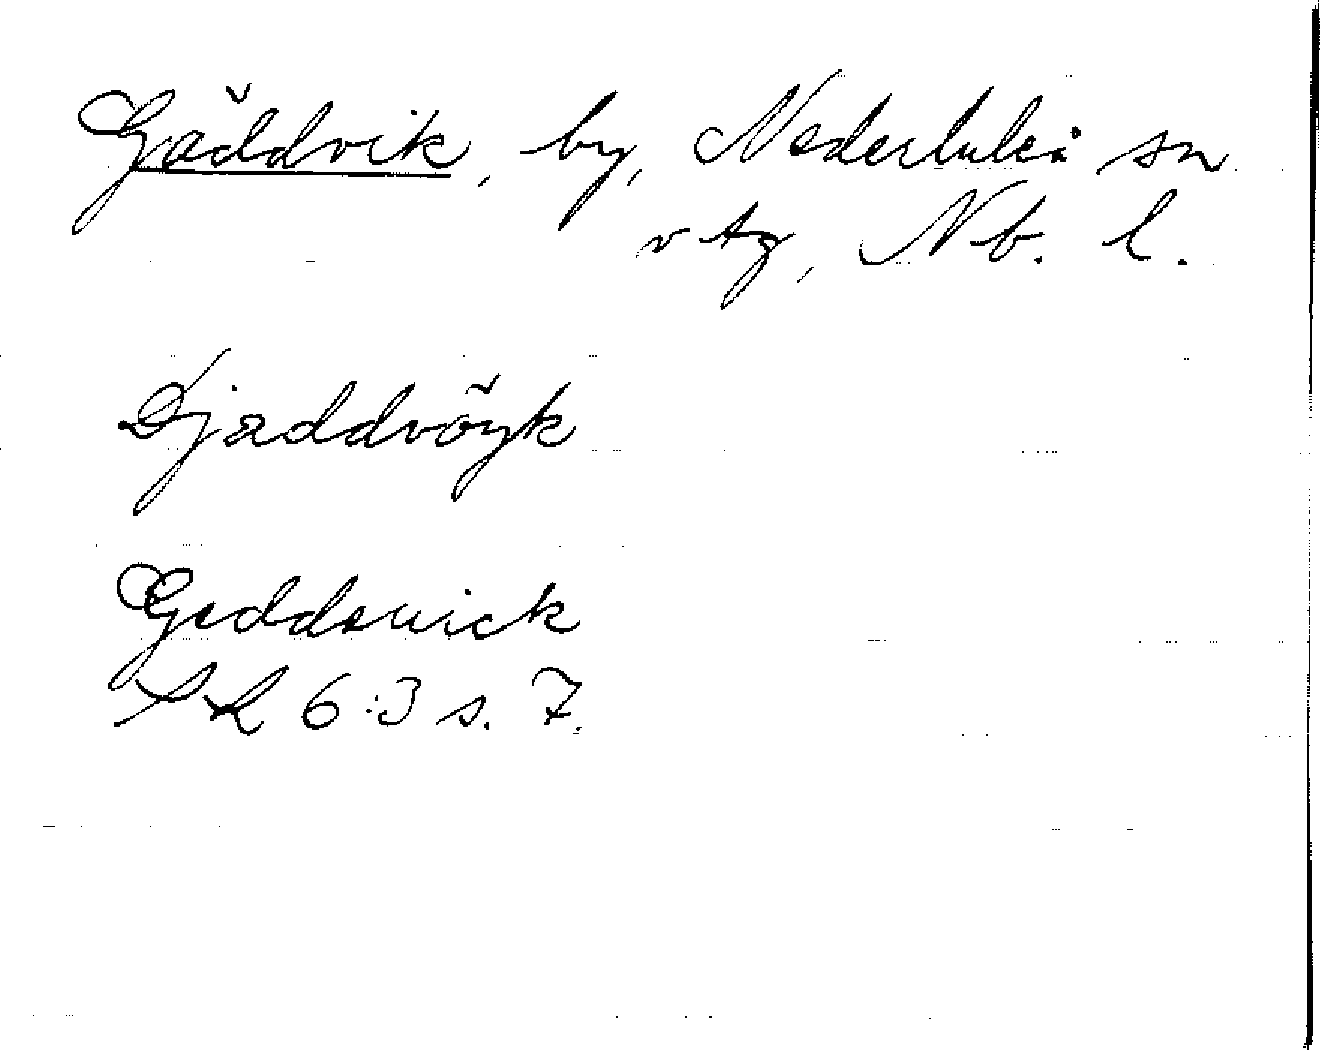 Gäddvik, by, Nederluleå sn
v tg, Nb. l.
Djäddvöyk
Geddewick
SR 6:3 s. 7.